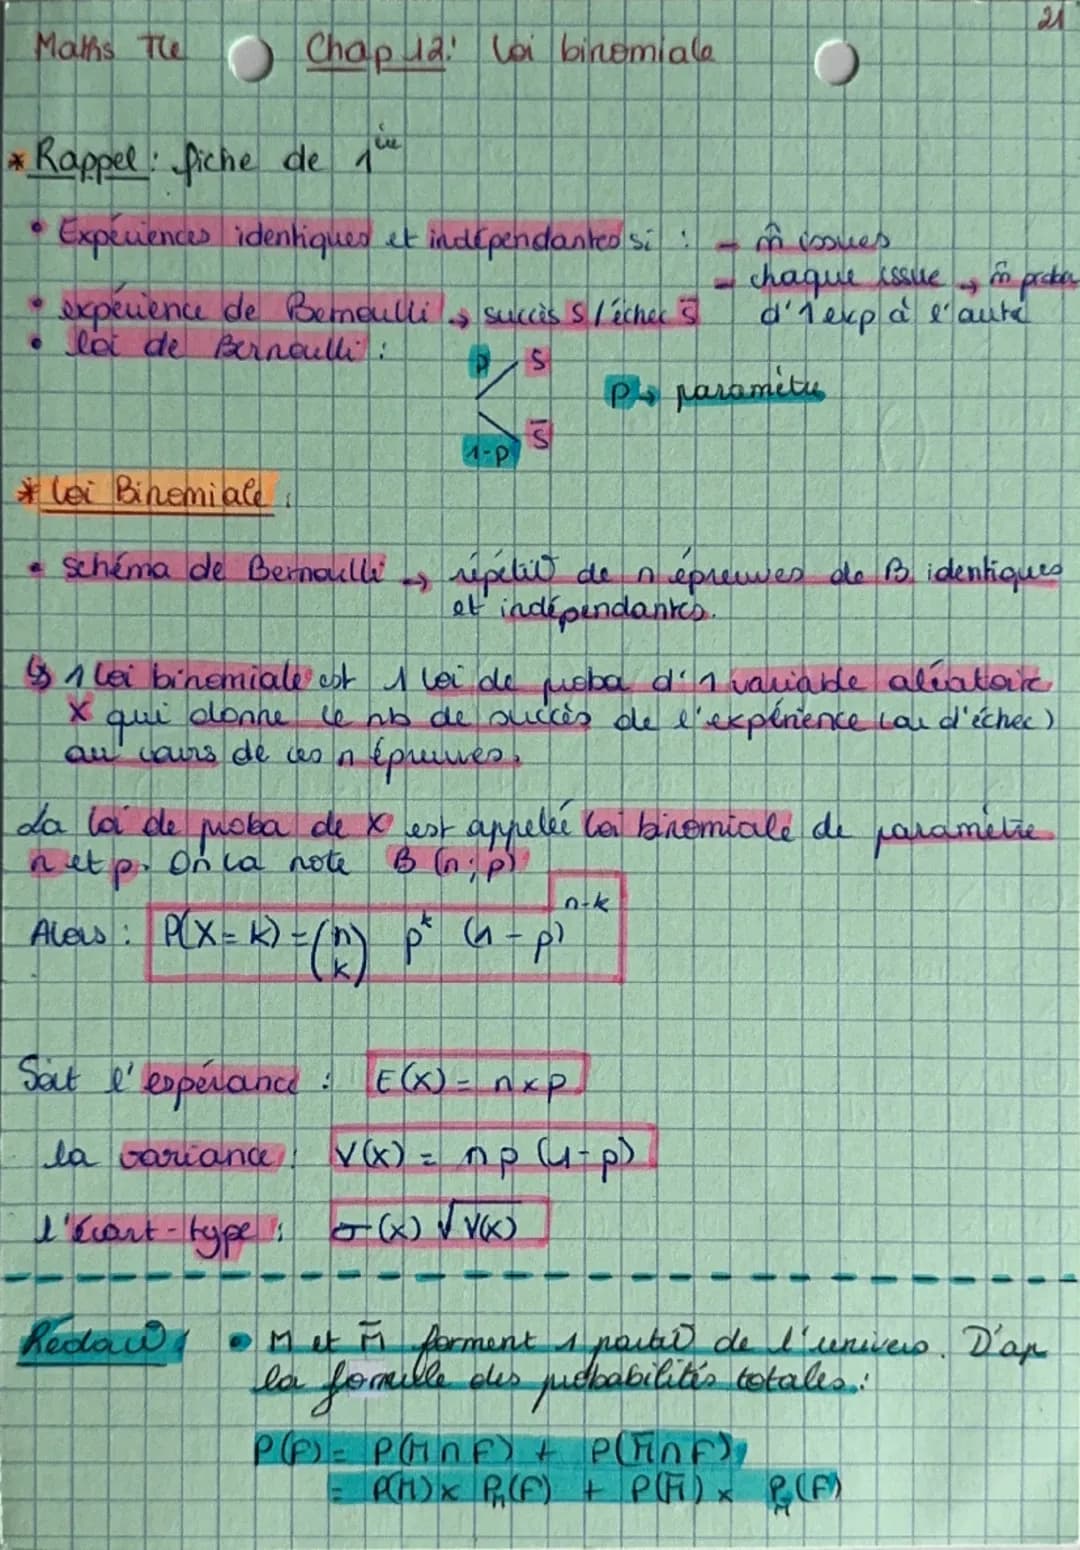 21
Maths Tle Chap 12: Loi binomiale
* Rappel: fiche de 1ère
• Expériences identiques et indépendantes si : - m̂ issues
- chaque issue → m̂ proba
d'1 exp à l'autre
• expérience de Bernoulli → succès S / échec S̅
• loi de Bernoulli :
p S
p → paramètre
1-p S̅
* Loi Binomiale :
• schéma de Bernoulli → répét° de n épreuves de B identiques
et indépendantes.
↳ 1 loi binomiale est 1 loi de proba d'1 variable aléatoire
X qui donne le nb de succès de l'expérience (ou d'échec)
au cours de ces n épreuves.
La loi de proba de X est appelée loi binomiale de paramètre
n et p. On la note B (n; p)
Alors : P(X = k) = (n k) p^k (1 - p)^n-k
Soit l'espérance : E(X) = n × p
la variance : V(X) = np (1-p)
l'écart-type : σ(X) √V(X)
Rédac° : • M et M̅ forment 1 partit° de l'univers. D'ap
la formule des probabilités totales :
P(F) = P(M∩F) + P(M̅∩F)
= P(M) × P_M(F) + P(M̅) × P_M̅(F)